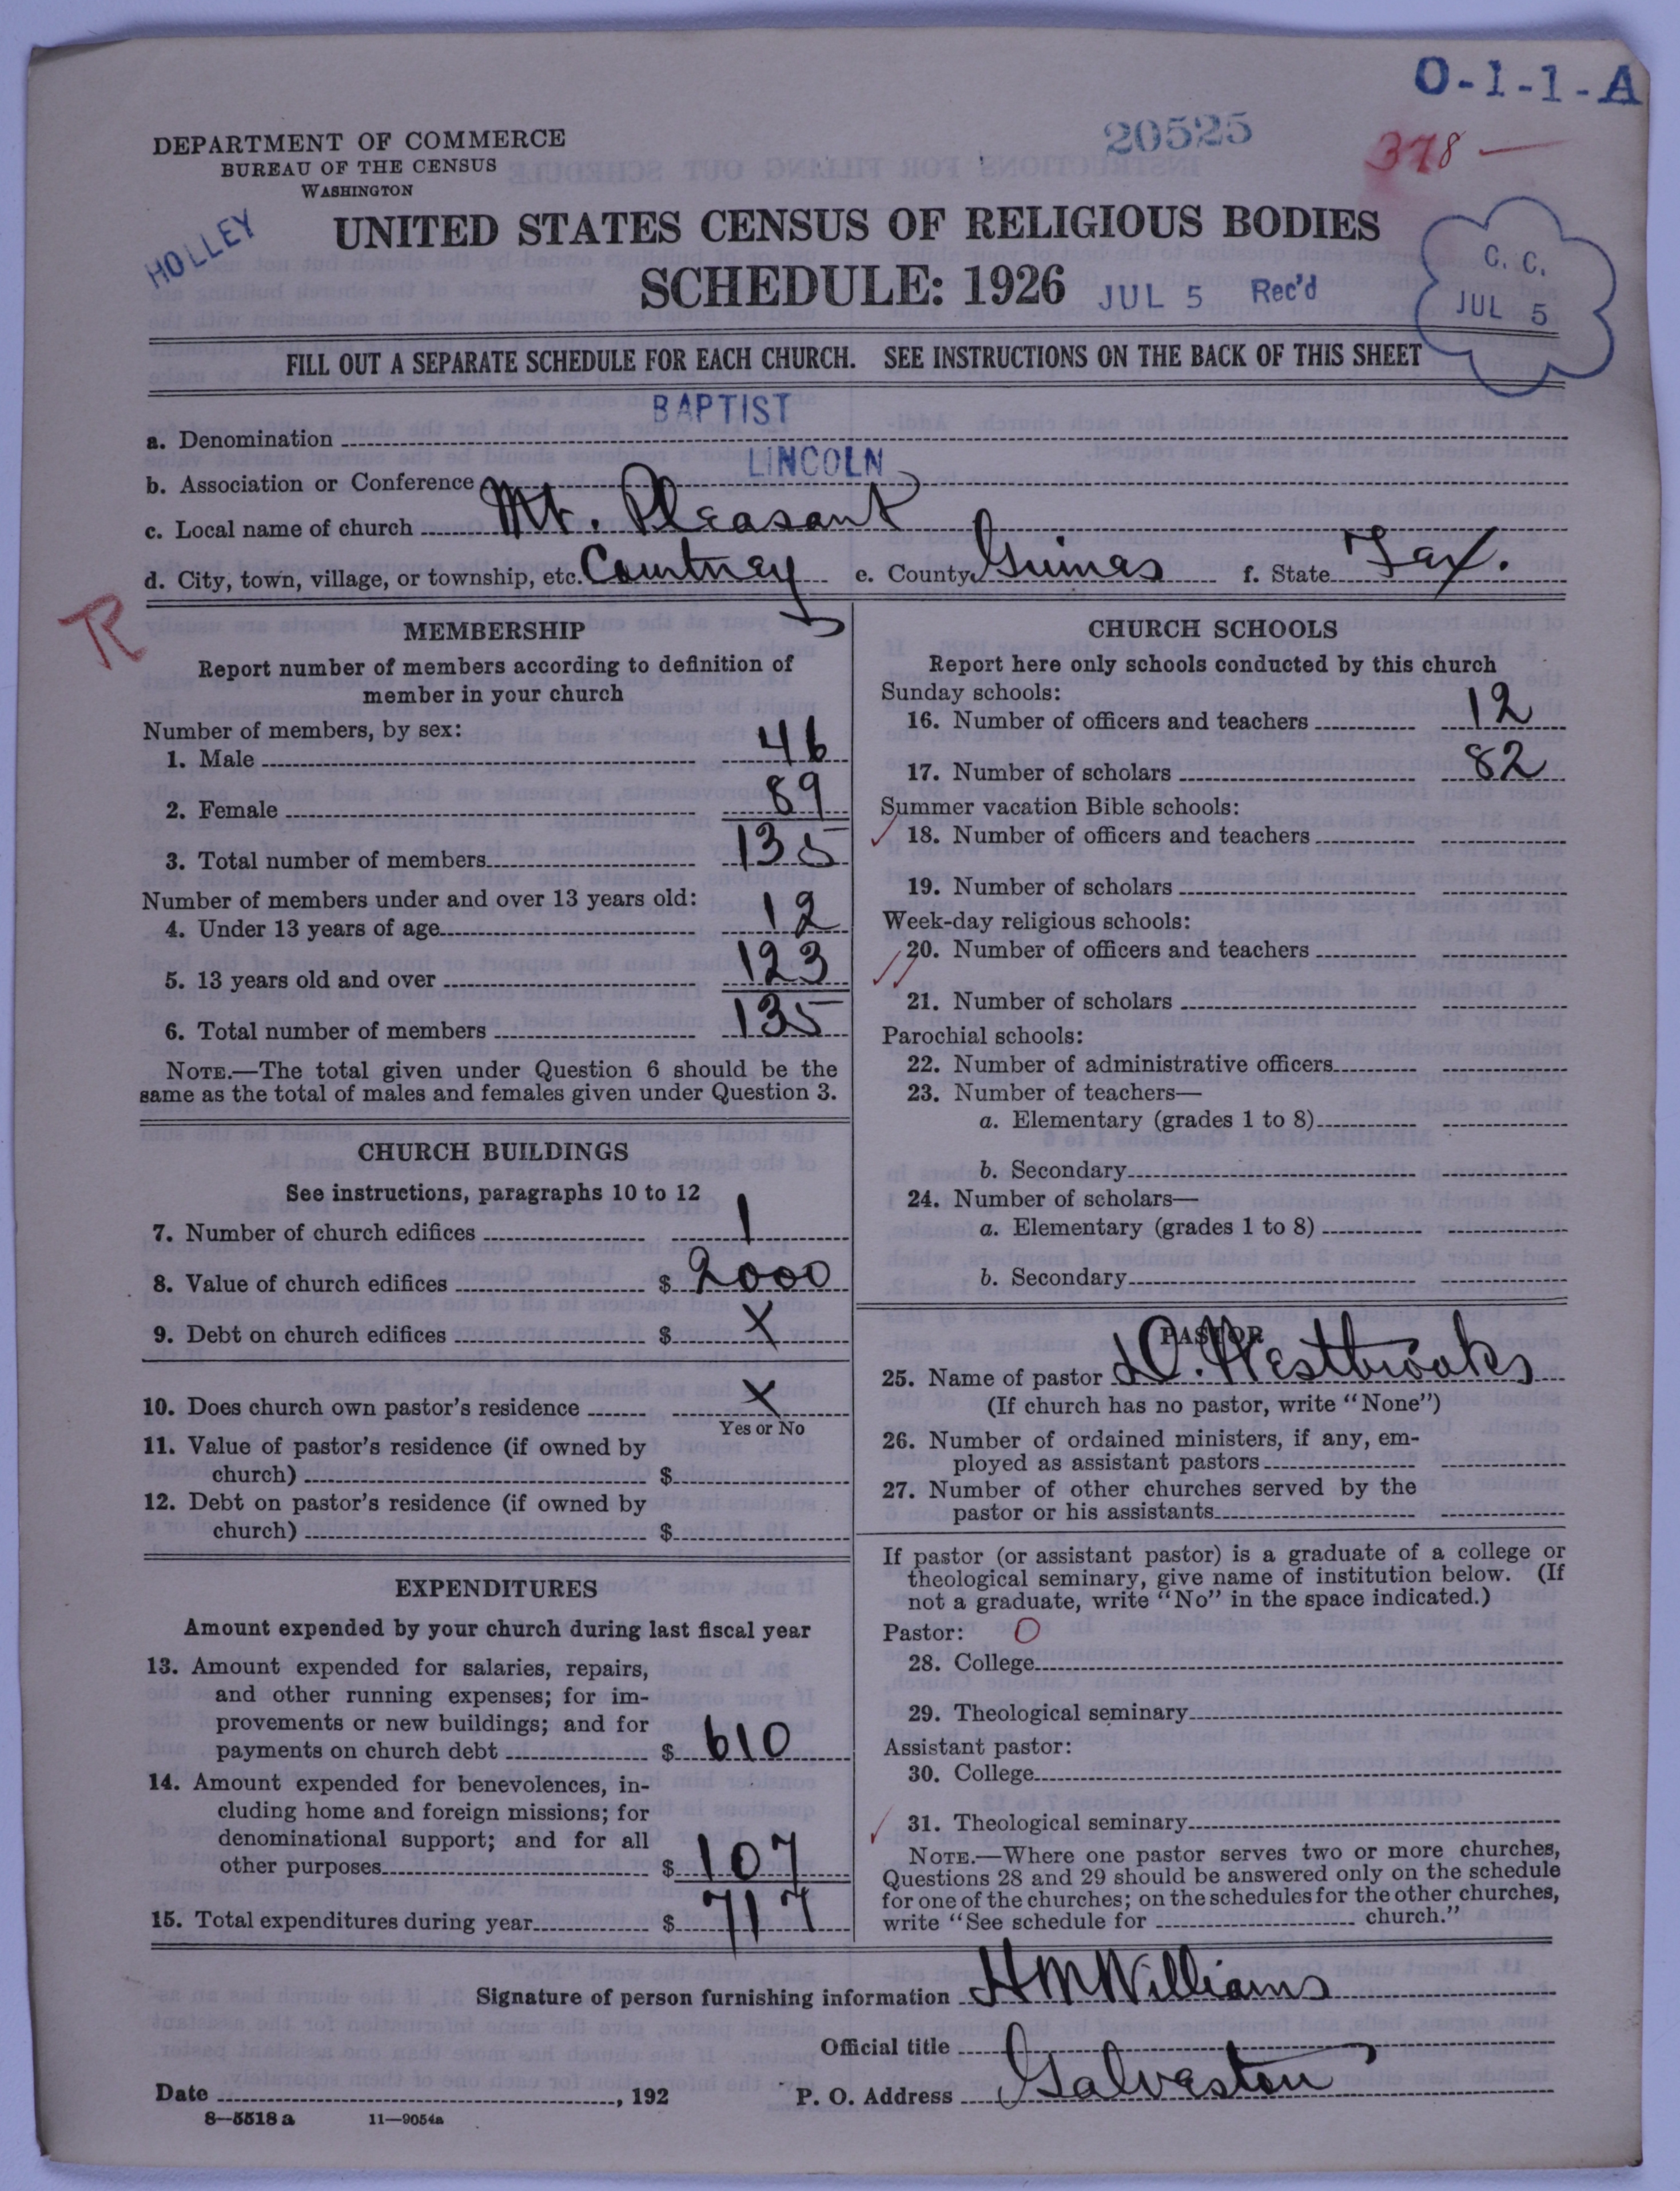 O-1-1-A
20525
378 —
DEPARTMENT OF COMMERCE
BUREAU OF THE CENSUS
WASHINGTON
HOLLEY
UNITED STATES CENSUS OF RELIGIOUS BODIES
SCHEDULE: 1926
JUL 5 Rec'd
C. C.
JUL 5
FILL OUT A SEPARATE SCHEDULE FOR EACH CHURCH. SEE INSTRUCTIONS ON THE BACK OF THIS SHEET
a. Denomination BAPTIST
b. Association or Conference LINCOLN
c. Local name of church Mt. Pleasant
d. City, town, village, or township, etc. Courtney e. County Grimes f. State Tex.
R
MEMBERSHIP
Report number of members according to definition of
member in your church
Number of members, by sex:
1. Male 46
2. Female 89
3. Total number of members 135
Number of members under and over 13 years old:
4. Under 13 years of age 12
5. 13 years old and over 123
6. Total number of members 135
NOTE.—The total given under Question 6 should be the
same as the total of males and females given under Question 3.
CHURCH BUILDINGS
See instructions, paragraphs 10 to 12
7. Number of church edifices 1
8. Value of church edifices $ 2000
9. Debt on church edifices $ X
10. Does church own pastor's residence X
Yes or No
11. Value of pastor's residence (if owned by
church) $
12. Debt on pastor's residence (if owned by
church) $
EXPENDITURES
Amount expended by your church during last fiscal year
13. Amount expended for salaries, repairs,
and other running expenses; for im-
provements or new buildings; and for
payments on church debt $ 610
14. Amount expended for benevolences, in-
cluding home and foreign missions; for
denominational support; and for all
other purposes $ 107
15. Total expenditures during year $ 717
CHURCH SCHOOLS
Report here only schools conducted by this church
Sunday schools:
16. Number of officers and teachers 12
17. Number of scholars 82
Summer vacation Bible schools:
18. Number of officers and teachers
19. Number of scholars
Week-day religious schools:
20. Number of officers and teachers
21. Number of scholars
Parochial schools:
22. Number of administrative officers
23. Number of teachers—
a. Elementary (grades 1 to 8)
b. Secondary
24. Number of scholars—
a. Elementary (grades 1 to 8)
b. Secondary
PASTOR
25. Name of pastor D. Westbrooks
(If church has no pastor, write "None")
26. Number of ordained ministers, if any, em-
ployed as assistant pastors
27. Number of other churches served by the
pastor or his assistants
If pastor (or assistant pastor) is a graduate of a college or
theological seminary, give name of institution below. (If
not a graduate, write "No" in the space indicated.)
Pastor: O
28. College
29. Theological seminary
Assistant pastor:
30. College
31. Theological seminary
NOTE.—Where one pastor serves two or more churches,
Questions 28 and 29 should be answered only on the schedule
for one of the churches; on the schedules for the other churches,
write "See schedule for church."
Signature of person furnishing information HM Williams
Official title
Date , 192 P. O. Address Galveston
8—5518 a 11—9054a